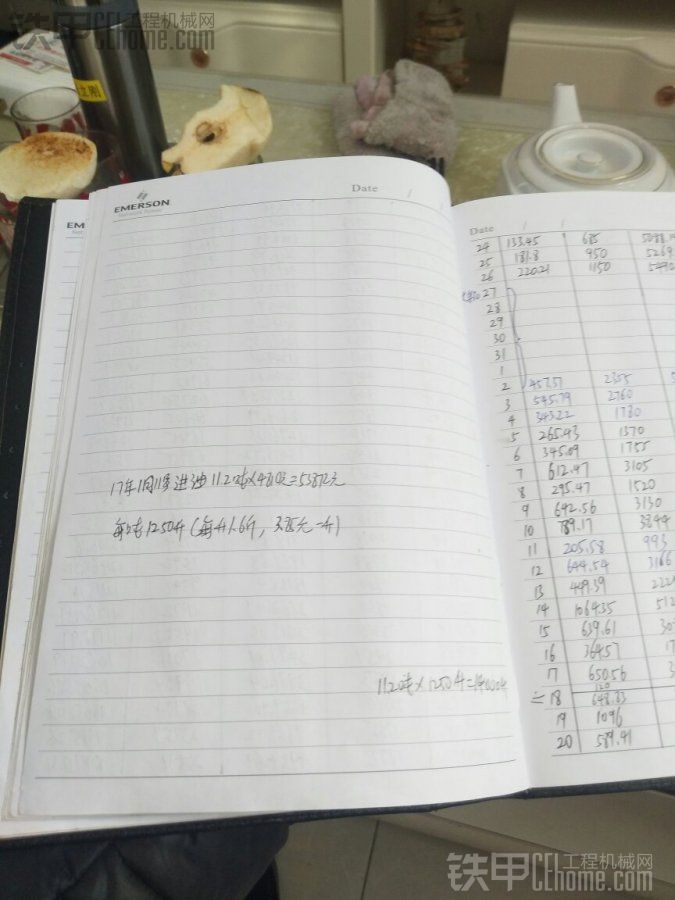 铁甲 CEChome.com 工程机械网
EMERSON
Date / /
17年1月11号进油11.20吨×4810元=53872元
每吨1250升(每升1.6斤, 3.85元一升)
11.20吨×1250升=14000升
EM
Date / /
24 133.45 685 5088.1
25 181.8 950 5269
26 220.21 1150 5490
27
28
29
30
31
1
2 457.57 2355
3 545.79 2760
4 343.22 1780
5 265.93 1370
6 345.09 1755
7 612.47 3105
8 295.47 1520
9 642.56 3130
10 789.17 3844
11 205.58 993
12 644.54 3166
13 449.39 222
14 1064.35 512
15 639.61 30
16 364.57 17
17 650.56 3
120
二 18 648.83
19 1096
20 589.41
铁甲 CEChome.com 工程机械网